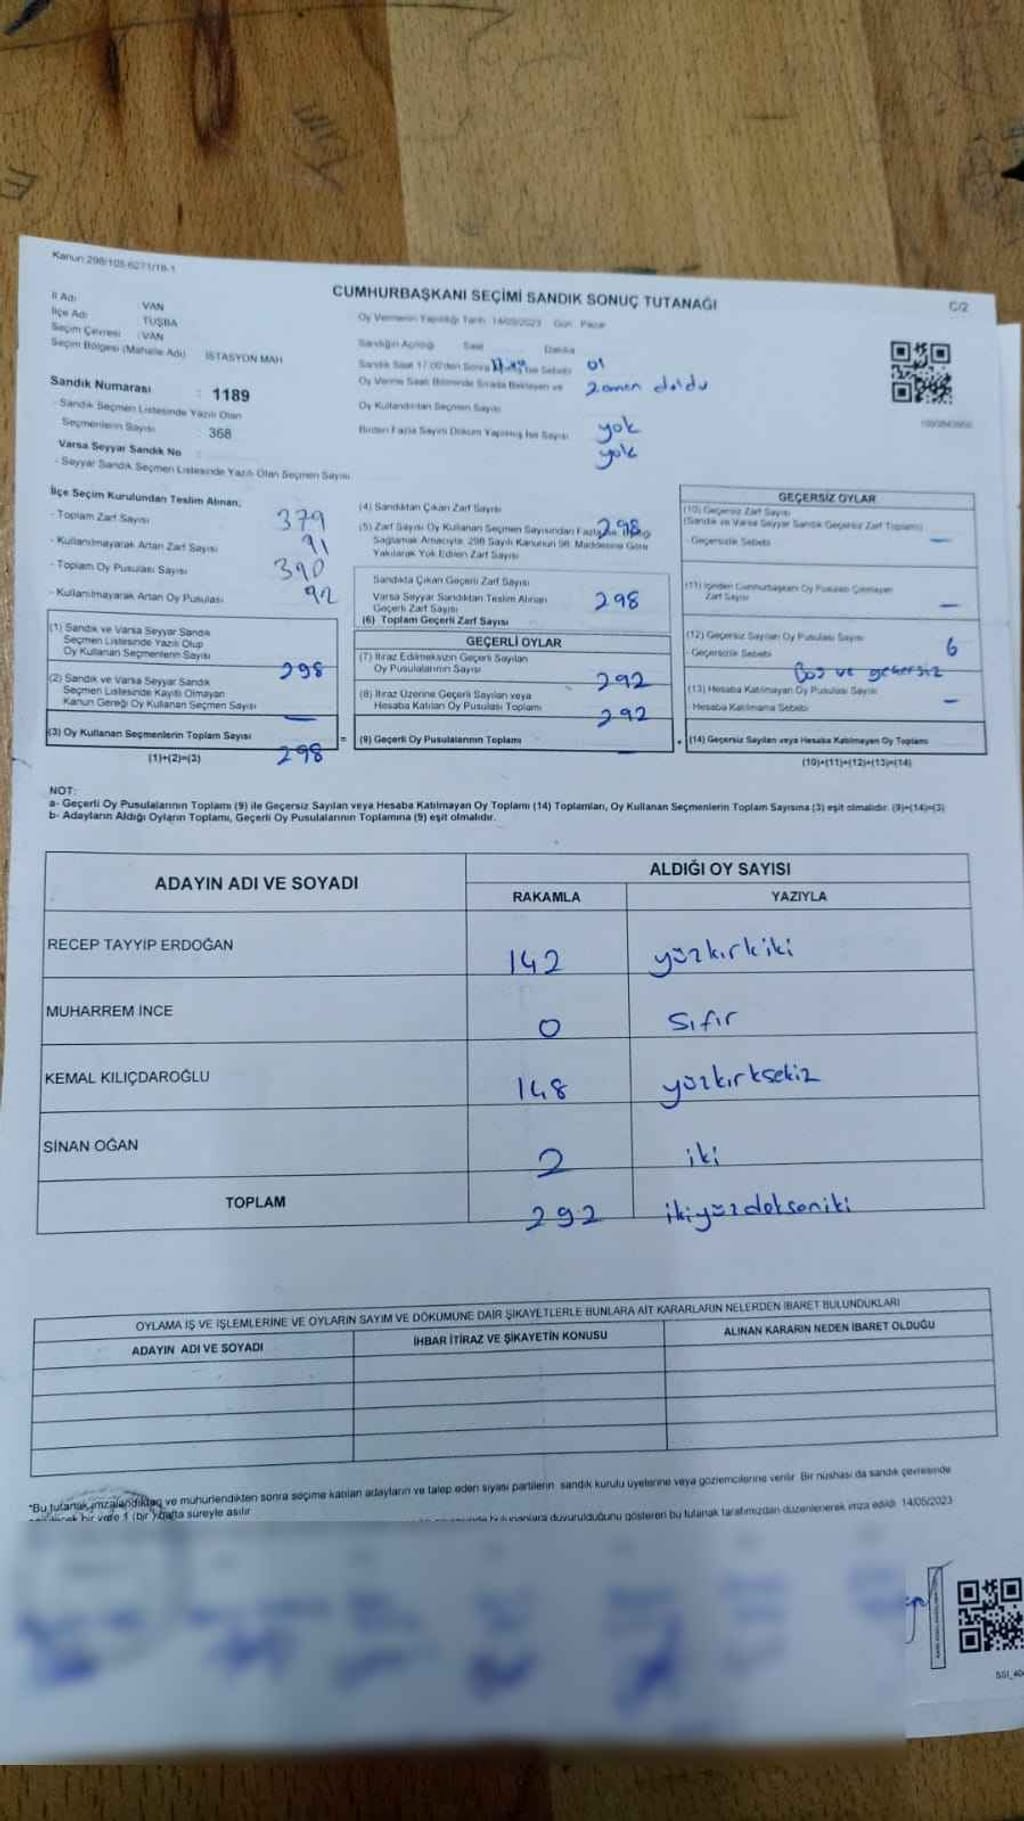 Kanun:298/105-6271/18-1
CUMHURBAŞKANI SEÇİMİ SANDIK SONUÇ TUTANAĞI
C/2
İl Adı VAN
İlçe Adı TUŞBA
Seçim Çevresi VAN
Seçim Bölgesi (Mahalle Adı) İSTASYON MAH
Sandık Numarası : 1189
- Sandık Seçmen Listesinde Yazılı Olan
Seçmenlerin Sayısı 368
Varsa Seyyar Sandık No
- Seyyar Sandık Seçmen Listesinde Yazılı Olan Seçmen Sayısı
Oy Vermenin Yapıldığı Tarih 14/05/2023 Gün Pazar
Sandığın Açılığı Saat Dakika
01
Oy Verme Saati Bitiminde Sırada Bekleyen ve zamen doldu
Oy Kullandırılan Seçmen Sayısı yok
Birden Fazla Sayım Döküm Yapılmış İse Sayısı yok
İlçe Seçim Kurulundan Teslim Alınan,
- Toplam Zarf Sayısı 379
- Kullanılmayarak Artan Zarf Sayısı 91
- Toplam Oy Pusulası Sayısı 390
- Kullanılmayarak Artan Oy Pusulası 92
(1) Sandık ve Varsa Seyyar Sandık
Seçmen Listesinde Yazılı Olup
Oy Kullanan Seçmenlerin Sayısı 298
(2) Sandık ve Varsa Seyyar Sandık
Seçmen Listesinde Kayıtlı Olmayan
Kanun Gereği Oy Kullanan Seçmen Sayısı —
(3) Oy Kullanan Seçmenlerin Toplam Sayısı 298
(1)+(2)=(3)
(4) Sandıktan Çıkan Zarf Sayısı 298
(5) Zarf Sayısı Oy Kullanan Seçmen Sayısından Fazla
Sağlamak Amacıyla, 298 Sayılı Kanunun 98. Maddesine Göre
Yakılarak Yok Edilen Zarf Sayısı
Sandıkta Çıkan Geçerli Zarf Sayısı
Varsa Seyyar Sandıktan Teslim Alınan
Geçerli Zarf Sayısı
298
(6) Toplam Geçerli Zarf Sayısı
GEÇERLİ OYLAR
(7) İtiraz Edilmeksizin Geçerli Sayılan
Oy Pusulalarının Sayısı 292
(8) İtiraz Üzerine Geçerli Sayılan veya
Hesaba Katılan Oy Pusulası Toplamı 292
= (9) Geçerli Oy Pusulalarının Toplamı
GEÇERSİZ OYLAR
(10) Geçersiz Zarf Sayısı
(Sandık ve Varsa Seyyar Sandık Geçersiz Zarf Toplamı)
- Geçersizlik Sebebi —
(11) İçinden Cumhurbaşkanı Oy Pusulası Çıkmayan
Zarf Sayısı —
(12) Geçersiz Sayılan Oy Pusulası Sayısı 6
- Geçersizlik Sebebi Boş ve geçersiz
(13) Hesaba Katılmayan Oy Pusulası Sayısı —
Hesaba Katılmama Sebebi
+ (14) Geçersiz Sayılan veya Hesaba Katılmayan Oy Toplamı
(10)+(11)+(12)+(13)=(14)
NOT:
a- Geçerli Oy Pusulalarının Toplamı (9) ile Geçersiz Sayılan veya Hesaba Katılmayan Oy Toplamı (14) Toplamları, Oy Kullanan Seçmenlerin Toplam Sayısına (3) eşit olmalıdır. (9)+(14)=(3)
b- Adayların Aldığı Oyların Toplamı, Geçerli Oy Pusulalarının Toplamına (9) eşit olmalıdır.
ADAYIN ADI VE SOYADI
ALDIĞI OY SAYISI
RAKAMLA YAZIYLA
RECEP TAYYİP ERDOĞAN 142 yüzkırkiki
MUHARREM İNCE 0 sıfır
KEMAL KILIÇDAROĞLU 148 yüzkırksekiz
SİNAN OĞAN 2 iki
TOPLAM 292 ikiyüzdoksaniki
OYLAMA İŞ VE İŞLEMLERİNE VE OYLARIN SAYIM VE DÖKÜMÜNE DAİR ŞİKAYETLERLE BUNLARA AİT KARARLARIN NELERDEN İBARET BULUNDUKLARI
ADAYIN ADI VE SOYADI İHBAR İTİRAZ VE ŞİKAYETİN KONUSU ALINAN KARARIN NEDEN İBARET OLDUĞU
*Bu tutanak imzalandıktan ve mühürlendikten sonra seçime katılan adayların ve talep eden siyasi partilerin sandık kurulu üyelerine veya gözlemcilerine verilir. Bir nüshası da sandık çevresinde
bir yere 1 (bir) hafta süreyle asılır.
duyurulduğunu gösteren bu tutanak tarafımızdan düzenlenerek imza edildi. 14/05/2023